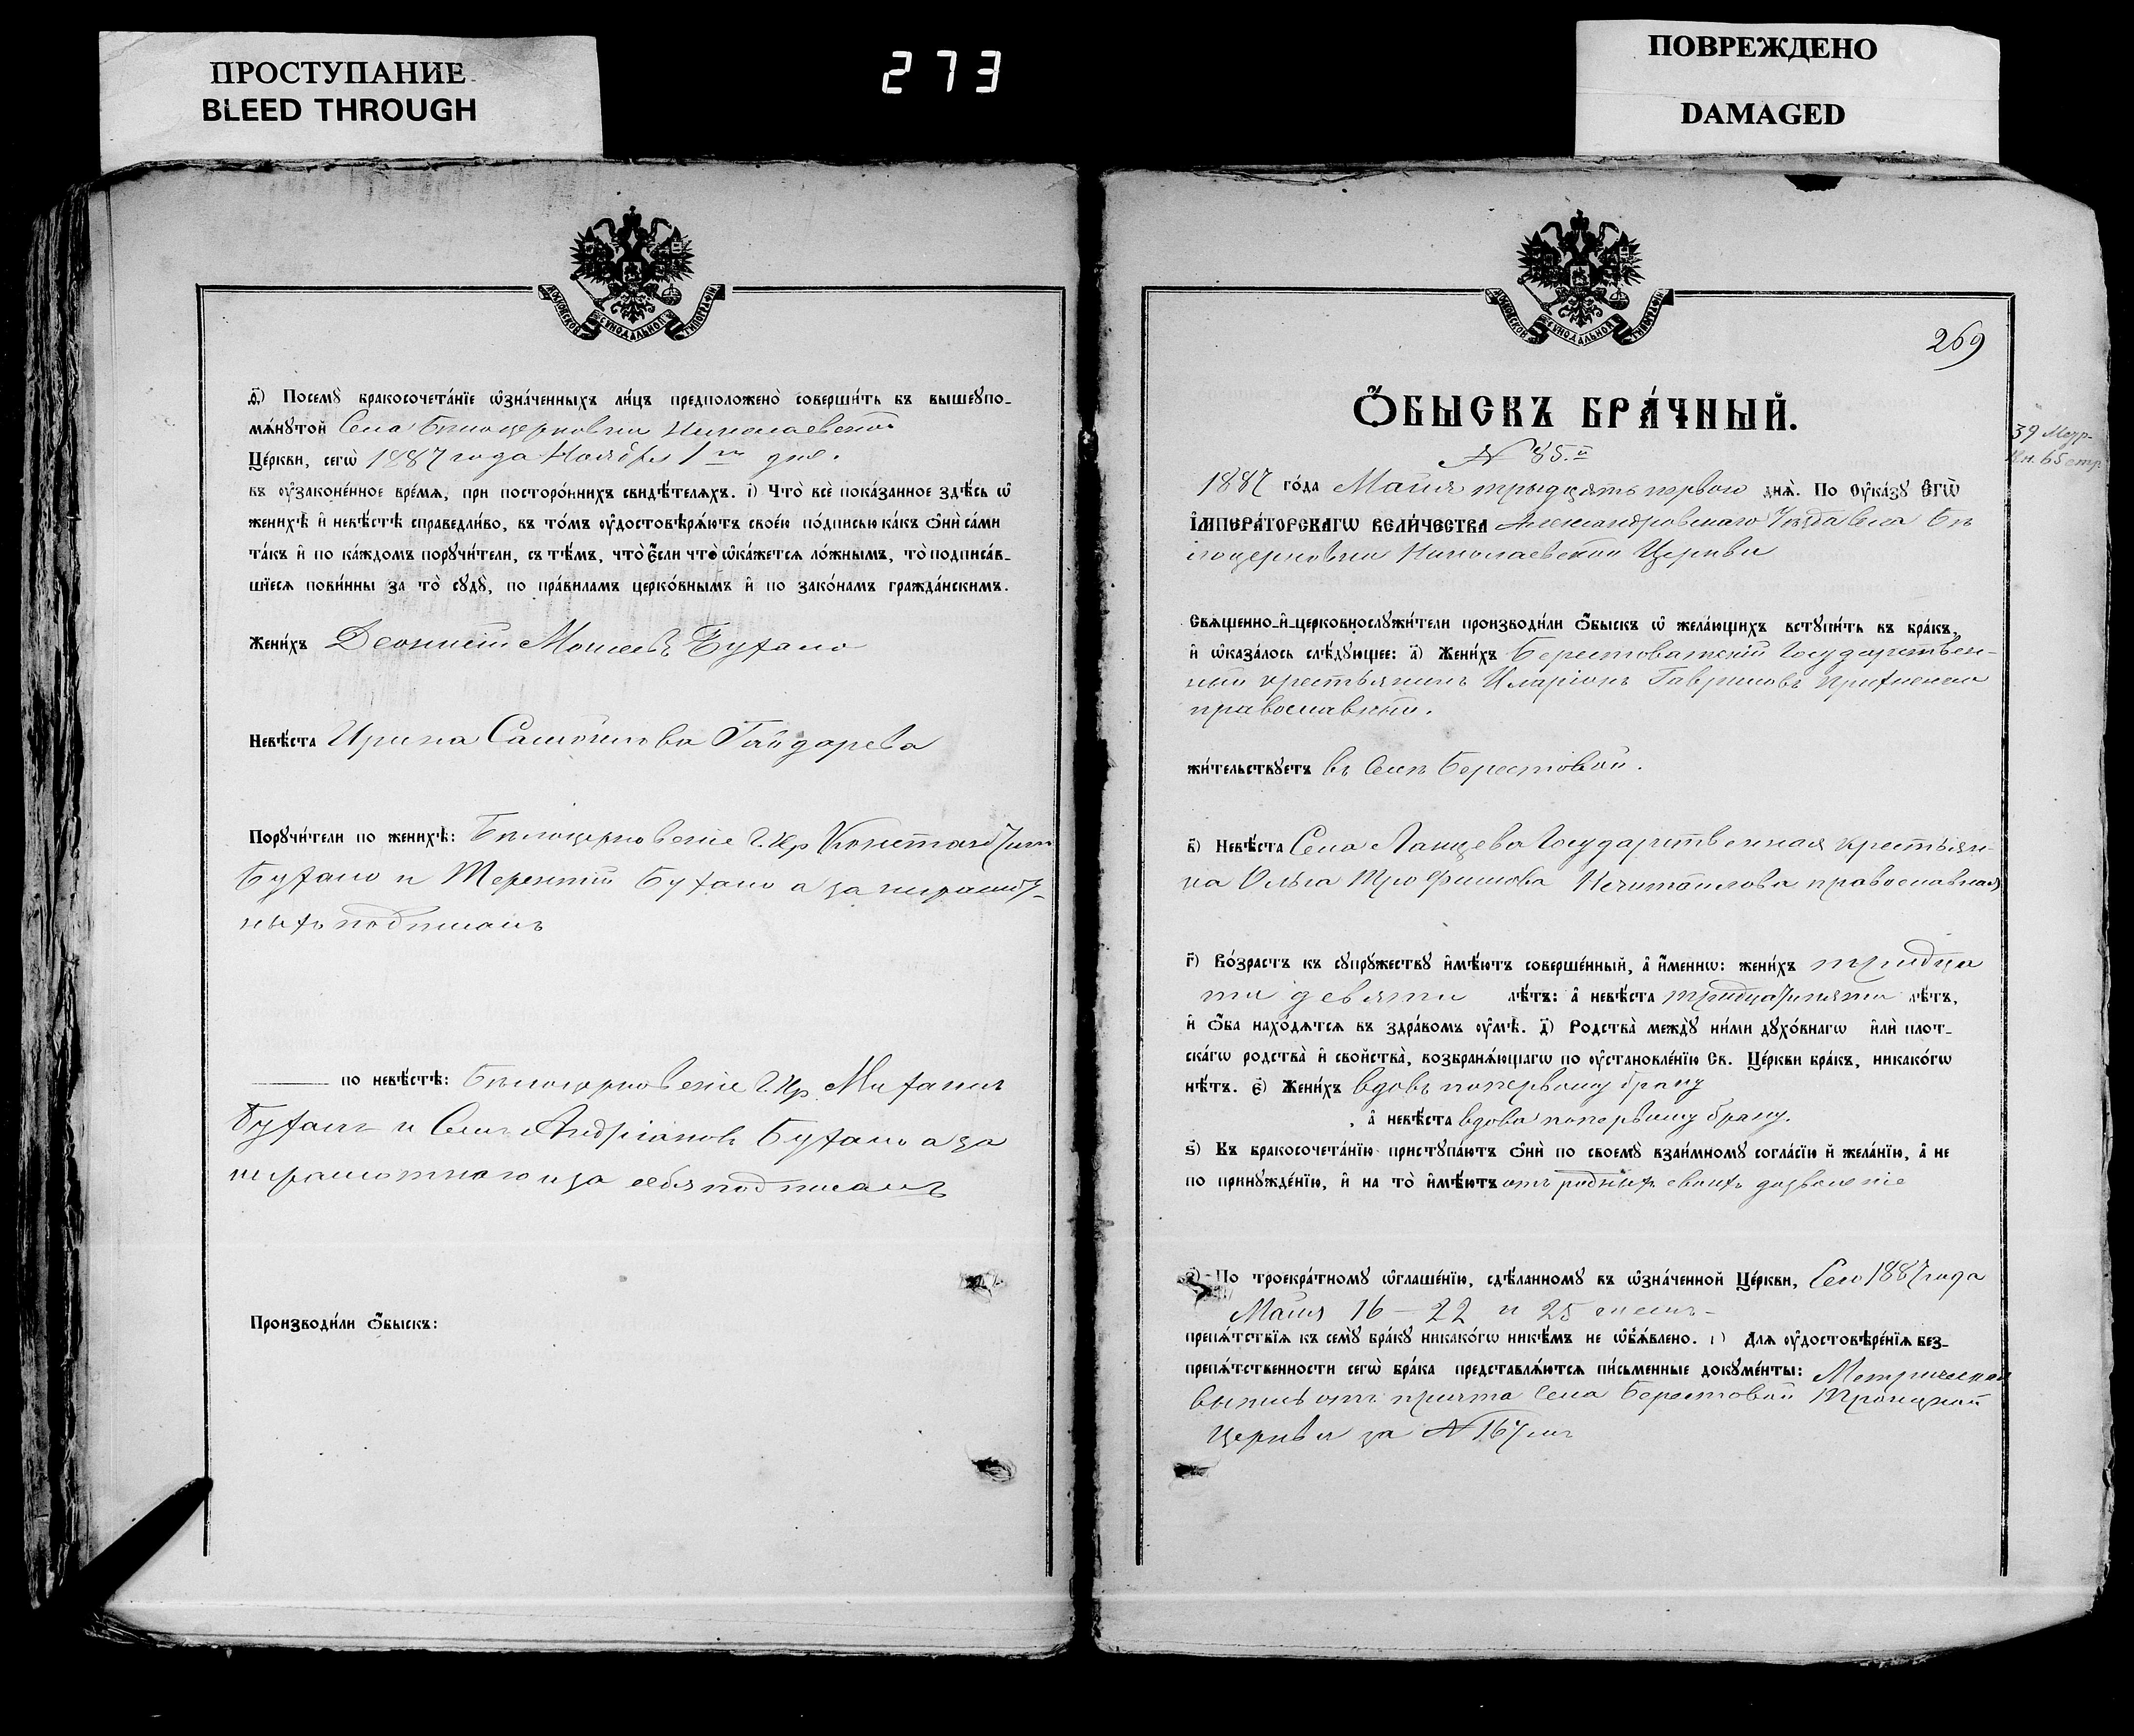 ПРОСТУПАНИЕ
BLEED THROUGH
273
ПОВРЕЖДЕНО
DAMAGED
МОСКОВСКОЙ СѴНОДАЛЬНОЙ ТИПОГРАФІИ
Посемꙋ̀ бракосочета́нїе ѡ҆зна́ченныхъ ли́цъ предположено̀ соверши́ть въ вышеꙋпо-
мѧ́нꙋтой Села Бѣлоцерковки Николаевской
Це́ркви, сегѡ̀ 1887 года Ноября 1го дня.
въ ᲂу҆законе́нное вре́мѧ, при посторо́ннихъ свидѣ́телѧхъ. і҃) Что̀ всѐ пока́занное здѣ́сь ѡ҆
женихѣ̀ и҆ невѣ́стѣ справедли́во, въ то́мъ ᲂу҆достовѣрѧ́ютъ свое́ю по́дписью ка́къ ѻ҆нѝ са́ми
та́къ и҆ по ка́ждомъ порꙋчи́тели, съ тѣ́мъ, что̀ є҆́сли что̀ ѡ҆ка́жетсѧ ло́жнымъ, то̀ подписа́в-
шїесѧ пови́нны за то̀ сꙋдꙋ̀, по пра́виламъ церко́внымъ и҆ по зако́намъ гражда́нскимъ.
Жени́хъ Деонисій Моисеевъ Бухало
Невѣ́ста Ирина Самойлова Гайдарева
Порꙋчи́тели по женихѣ̀: Бѣлоцерковские Г. Кр
Бухало и Терентій Бухало а за неграмот-
ныхъ подписалъ
по невѣ́стѣ: Бѣлоцерковские Г. Кр. Михаилъ
Бухало и Андріановъ Бухало а за
неграмотного и за себя подписалъ
Производи́ли ѻ҆́быскъ:
МОСКОВСКОЙ СѴНОДАЛЬНОЙ ТИПОГРАФІИ
269
Ѻ҆́БЫСКЪ БРА́ЧНЫЙ.
N 35.й
39 Метр.
Кн. 65 стр
1887 го́да Маия тридцять первого днѧ̀. По ᲂу҆ка́зꙋ Є҆гѡ̀
І҆мпера́торскагѡ Вели́чества Александровского Уѣзда Села Бѣ
лоцерковки Николаевской Церкви
Свѧще́нно-и҆-церковнослꙋжи́тели производи́ли ѻ҆́быскъ ѡ҆ жела́ющихъ встꙋпи́ть въ бра́къ,
и҆ ѡ҆каза́лось слѣ́дꙋющее: а҃) Жени́хъ Берестоватскій Государствен-
ный крестьянинъ Иларіонъ Гавриловъ
православный.
жи́тельствꙋетъ въ Селѣ Берестовой.
в҃) Невѣ́ста Села Ланцева Государственная крестьян-
ка Ольга Трофимова Нечитайлова православная
г҃) Во́зрастъ къ сꙋпрꙋ́жествꙋ и҆мѣ́ютъ соверше́нный, а҆ и҆́менно: жени́хъ тридца
ти девяти лѣ́тъ: а҆ невѣ́ста тридцати пяти лѣ́тъ,
и҆ ѻ҆́ба нахо́дѧтсѧ въ здра́вомъ ᲂу҆мѣ̀. д҃) Родства̀ междꙋ̀ ни́ми дꙋхо́внагѡ и҆лѝ плот-
ска́гѡ родства̀ и҆ свойства̀, возбранѧ́ющагѡ по ᲂу҆становле́нїю Св. Це́ркви бра́къ, никако́гѡ
нѣ́тъ. є҃) Жени́хъ вдовъ поперьвому браку
, а҆ невѣ́ста вдова поперьвому браку.
ѕ҃) Къ бракосочета́нїю пристꙋпа́ютъ ѻ҆нѝ по своемꙋ̀ взаи́мномꙋ согла́сїю и҆ жела́нїю, а҆ не
по принꙋжде́нїю, и҆ на то̀ и҆мѣ́ютъ отъ родныхъ своихъ дозволение
По троекра́тномꙋ ѡ҆глаше́нїю, сдѣ́ланномꙋ въ ѡ҆зна́ченной Це́ркви, Сего 1887 года
Маия 16 – 22 и 25 числъ
препѧ́тствїѧ къ семꙋ̀ бра́кꙋ никако́гѡ никѣ́мъ не ѡ҆б̾ѧ́влено. и҃) Длѧ ᲂу҆достовѣре́нїѧ без-
препѧ́тственности сегѡ̀ бра́ка представлѧ́ютсѧ пи́сьменные докꙋме́нты: Метрическая
выпись отъ причта Села Берестовой Троицкой
Церкви за N 167мъ